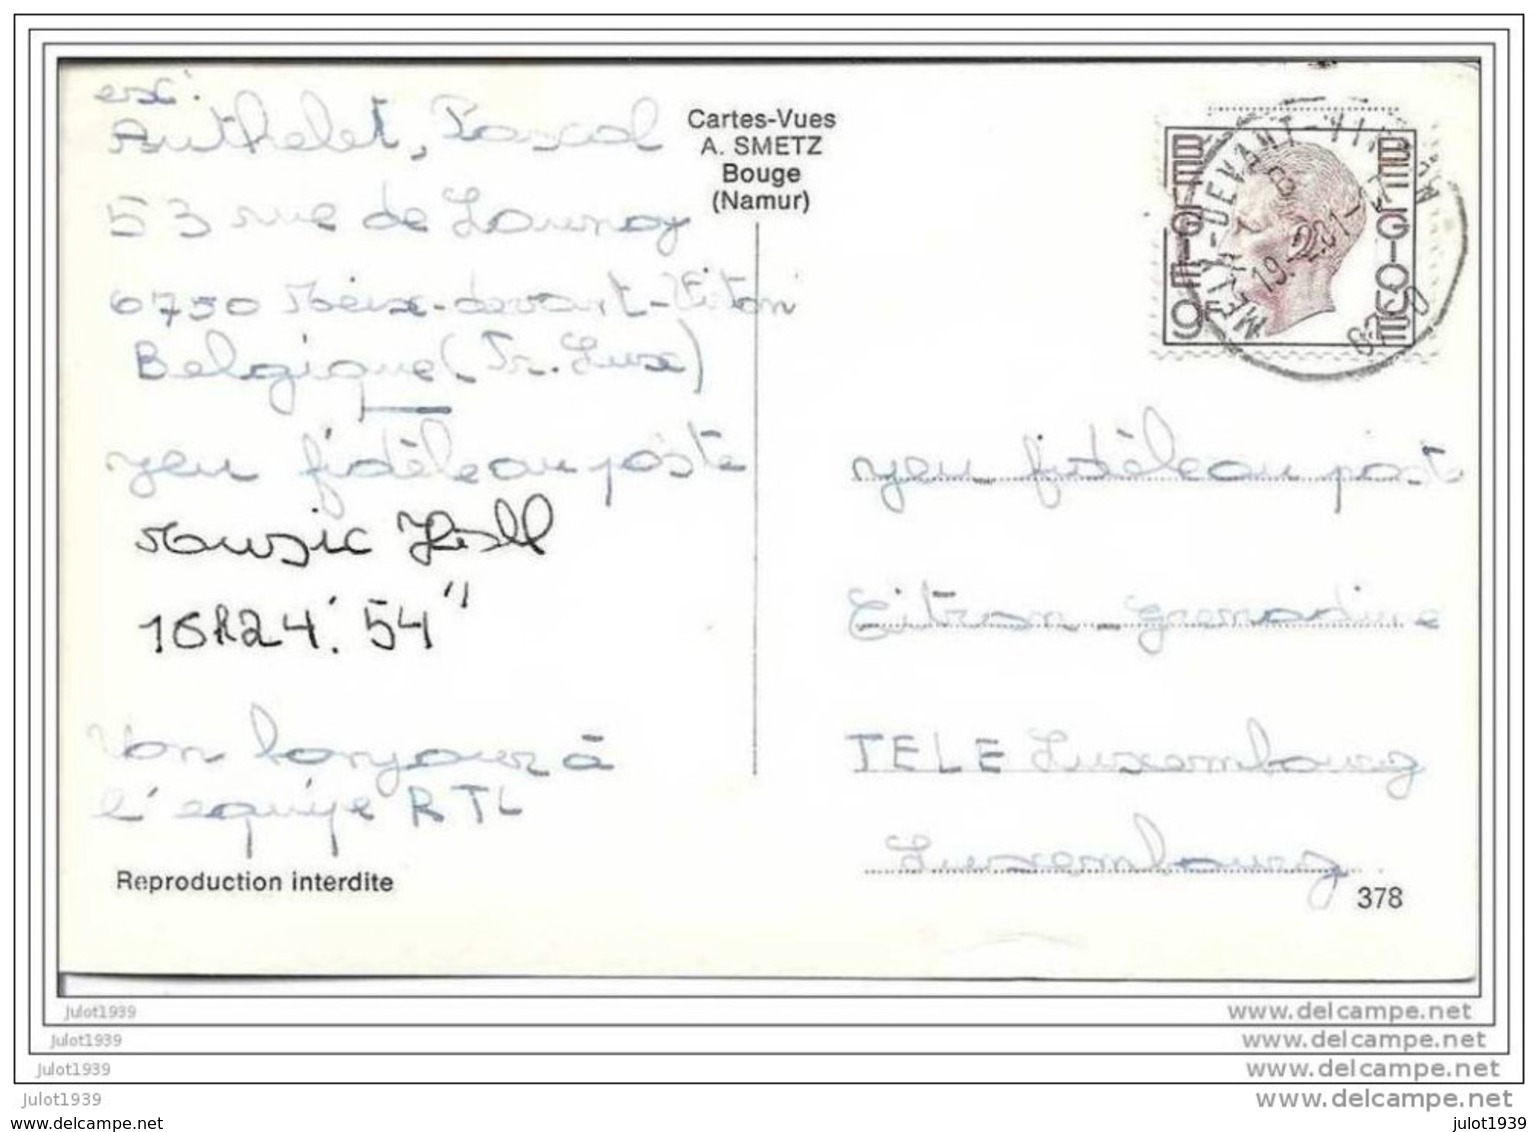 ex:
Authelet, Pascal
53 rue de Launoy
6750 Meix-devant-Virton
Belgique (Pr. Lux)
jeu fidèle au poste
Music Hall
16h24'. 54"
Mon bonjour à
l'équipe RTL
Reproduction interdite
Cartes-Vues
A. SMETZ
Bouge
(Namur)
BELGIE BELGIQUE
9F
MEIX-DEVANT-VIRTON
19.-2.81-
jeu fidèle au poste
Citron-Grenadine
TELE Luxembourg
Luxembourg
378
julot1939 www.delcampe.net
julot1939 www.delcampe.net
julot1939 www.delcampe.net
julot1939 www.delcampe.net
www.delcampe.net julot1939